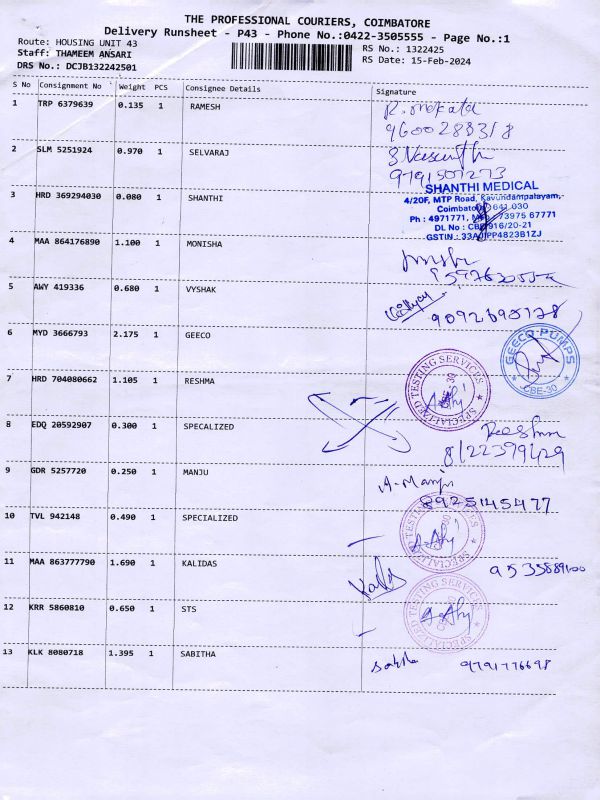 THE PROFESSIONAL COURIERS, COIMBATORE
Delivery Runsheet - P43 - Phone No.:0422-3505555 - Page No.:1
Route: HOUSING UNIT 43 RS No.: 1322425
Staff: THAMEEM ANSARI RS Date: 15-Feb-2024
DRS No.: DCJB132242501
S No Consignment No Weight PCS Consignee Details Signature
1 TRP 6379639 0.135 1 RAMESH
9600283318
2 SLM 5251924 0.970 1 SELVARAJ
S.Vasanthi
9791507273
3 HRD 369294030 0.080 1 SHANTHI
SHANTHI MEDICAL
4/20F, MTP Road, Kavundampalayam,
Coimbatore 641 030
Ph : 4971771, 73975 67771
DL No : CBE 916/20-21
GSTIN : 33A PP4823B1ZJ
4 MAA 864176890 1.100 1 MONISHA
5 AWY 419336 0.680 1 VYSHAK
9092695128
6 MYD 3666793 2.175 1 GEECO
GEECO PUMPS
CBE-30
7 HRD 704080662 1.105 1 RESHMA
SPECIALIZED TESTING SERVICES
8 EDQ 20592907 0.300 1 SPECALIZED
Reshma
8122399429
9 GDR 5257720 0.250 1 MANJU
A-Manju
8925145477
10 TVL 942148 0.490 1 SPECIALIZED
SPECIALIZED TESTING SERVICES
11 MAA 863777790 1.690 1 KALIDAS
Kalidas
12 KRR 5860810 0.650 1 STS
SPECIALIZED TESTING SERVICES
13 KLK 8080718 1.395 1 SABITHA
9791776698